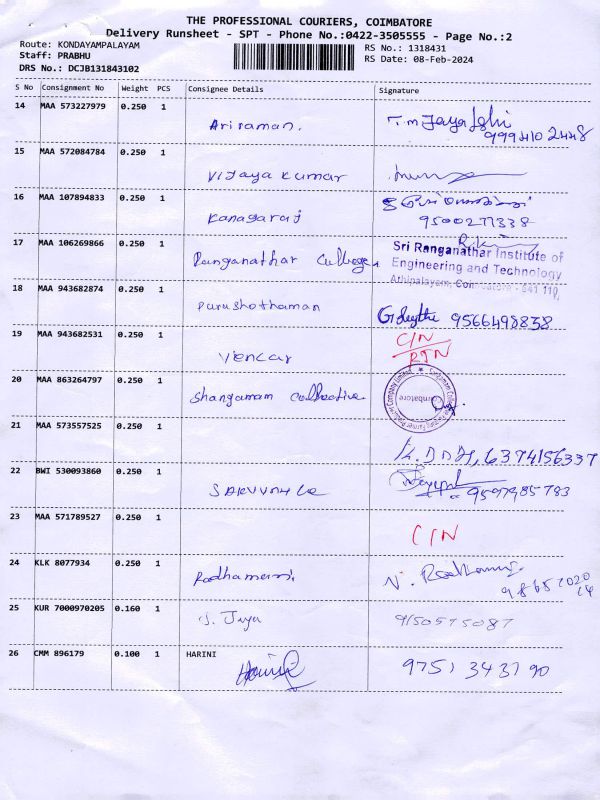 THE PROFESSIONAL COURIERS, COIMBATORE
Delivery Runsheet - SPT - Phone No.:0422-3505555 - Page No.:2
Route: KONDAYAMPALAYAM RS No.: 1318431
Staff: PRABHU RS Date: 08-Feb-2024
DRS No.: DCJB131843102
S No Consignment No Weight PCS Consignee Details Signature
14 MAA 573227979 0.250 1
Ariraman. T.m Jaya
9994102448
15 MAA 572084784 0.250 1
Vijaya Kumar
16 MAA 107894833 0.250 1
Kanagaraj 9500277338
17 MAA 106269866 0.250 1
Ranganathar College Sri Ranganathar Institute of
Engineering and Technology
Athipalayem, Coimbatore - 641 110.
18 MAA 943682874 0.250 1
Purushothaman 9566498838
19 MAA 943682531 0.250 1 C/N
Vencar RTN
20 MAA 863264797 0.250 1
Shangamam Collective Coimbatore
21 MAA 573557525 0.250 1
6374156337
22 BWI 530093860 0.250 1
9597985783
23 MAA 571789527 0.250 1
C/N
24 KLK 8077934 0.250 1
Radhamani N.
98657020
25 KUR 7000970205 0.160 1
S. Jaya 9150575087
26 CMM 896179 0.100 1 HARINI
Harini 9751343790